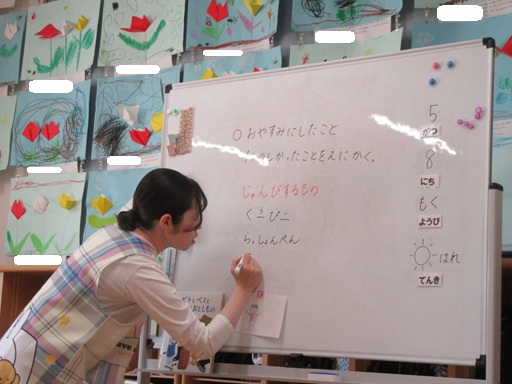 ○おやすみにしたこと
たのしかったことをえにかく。
じゅんびするもの
らっしょんぺん
5
がつ
8
にち
もく
ようび
はれ
てんき